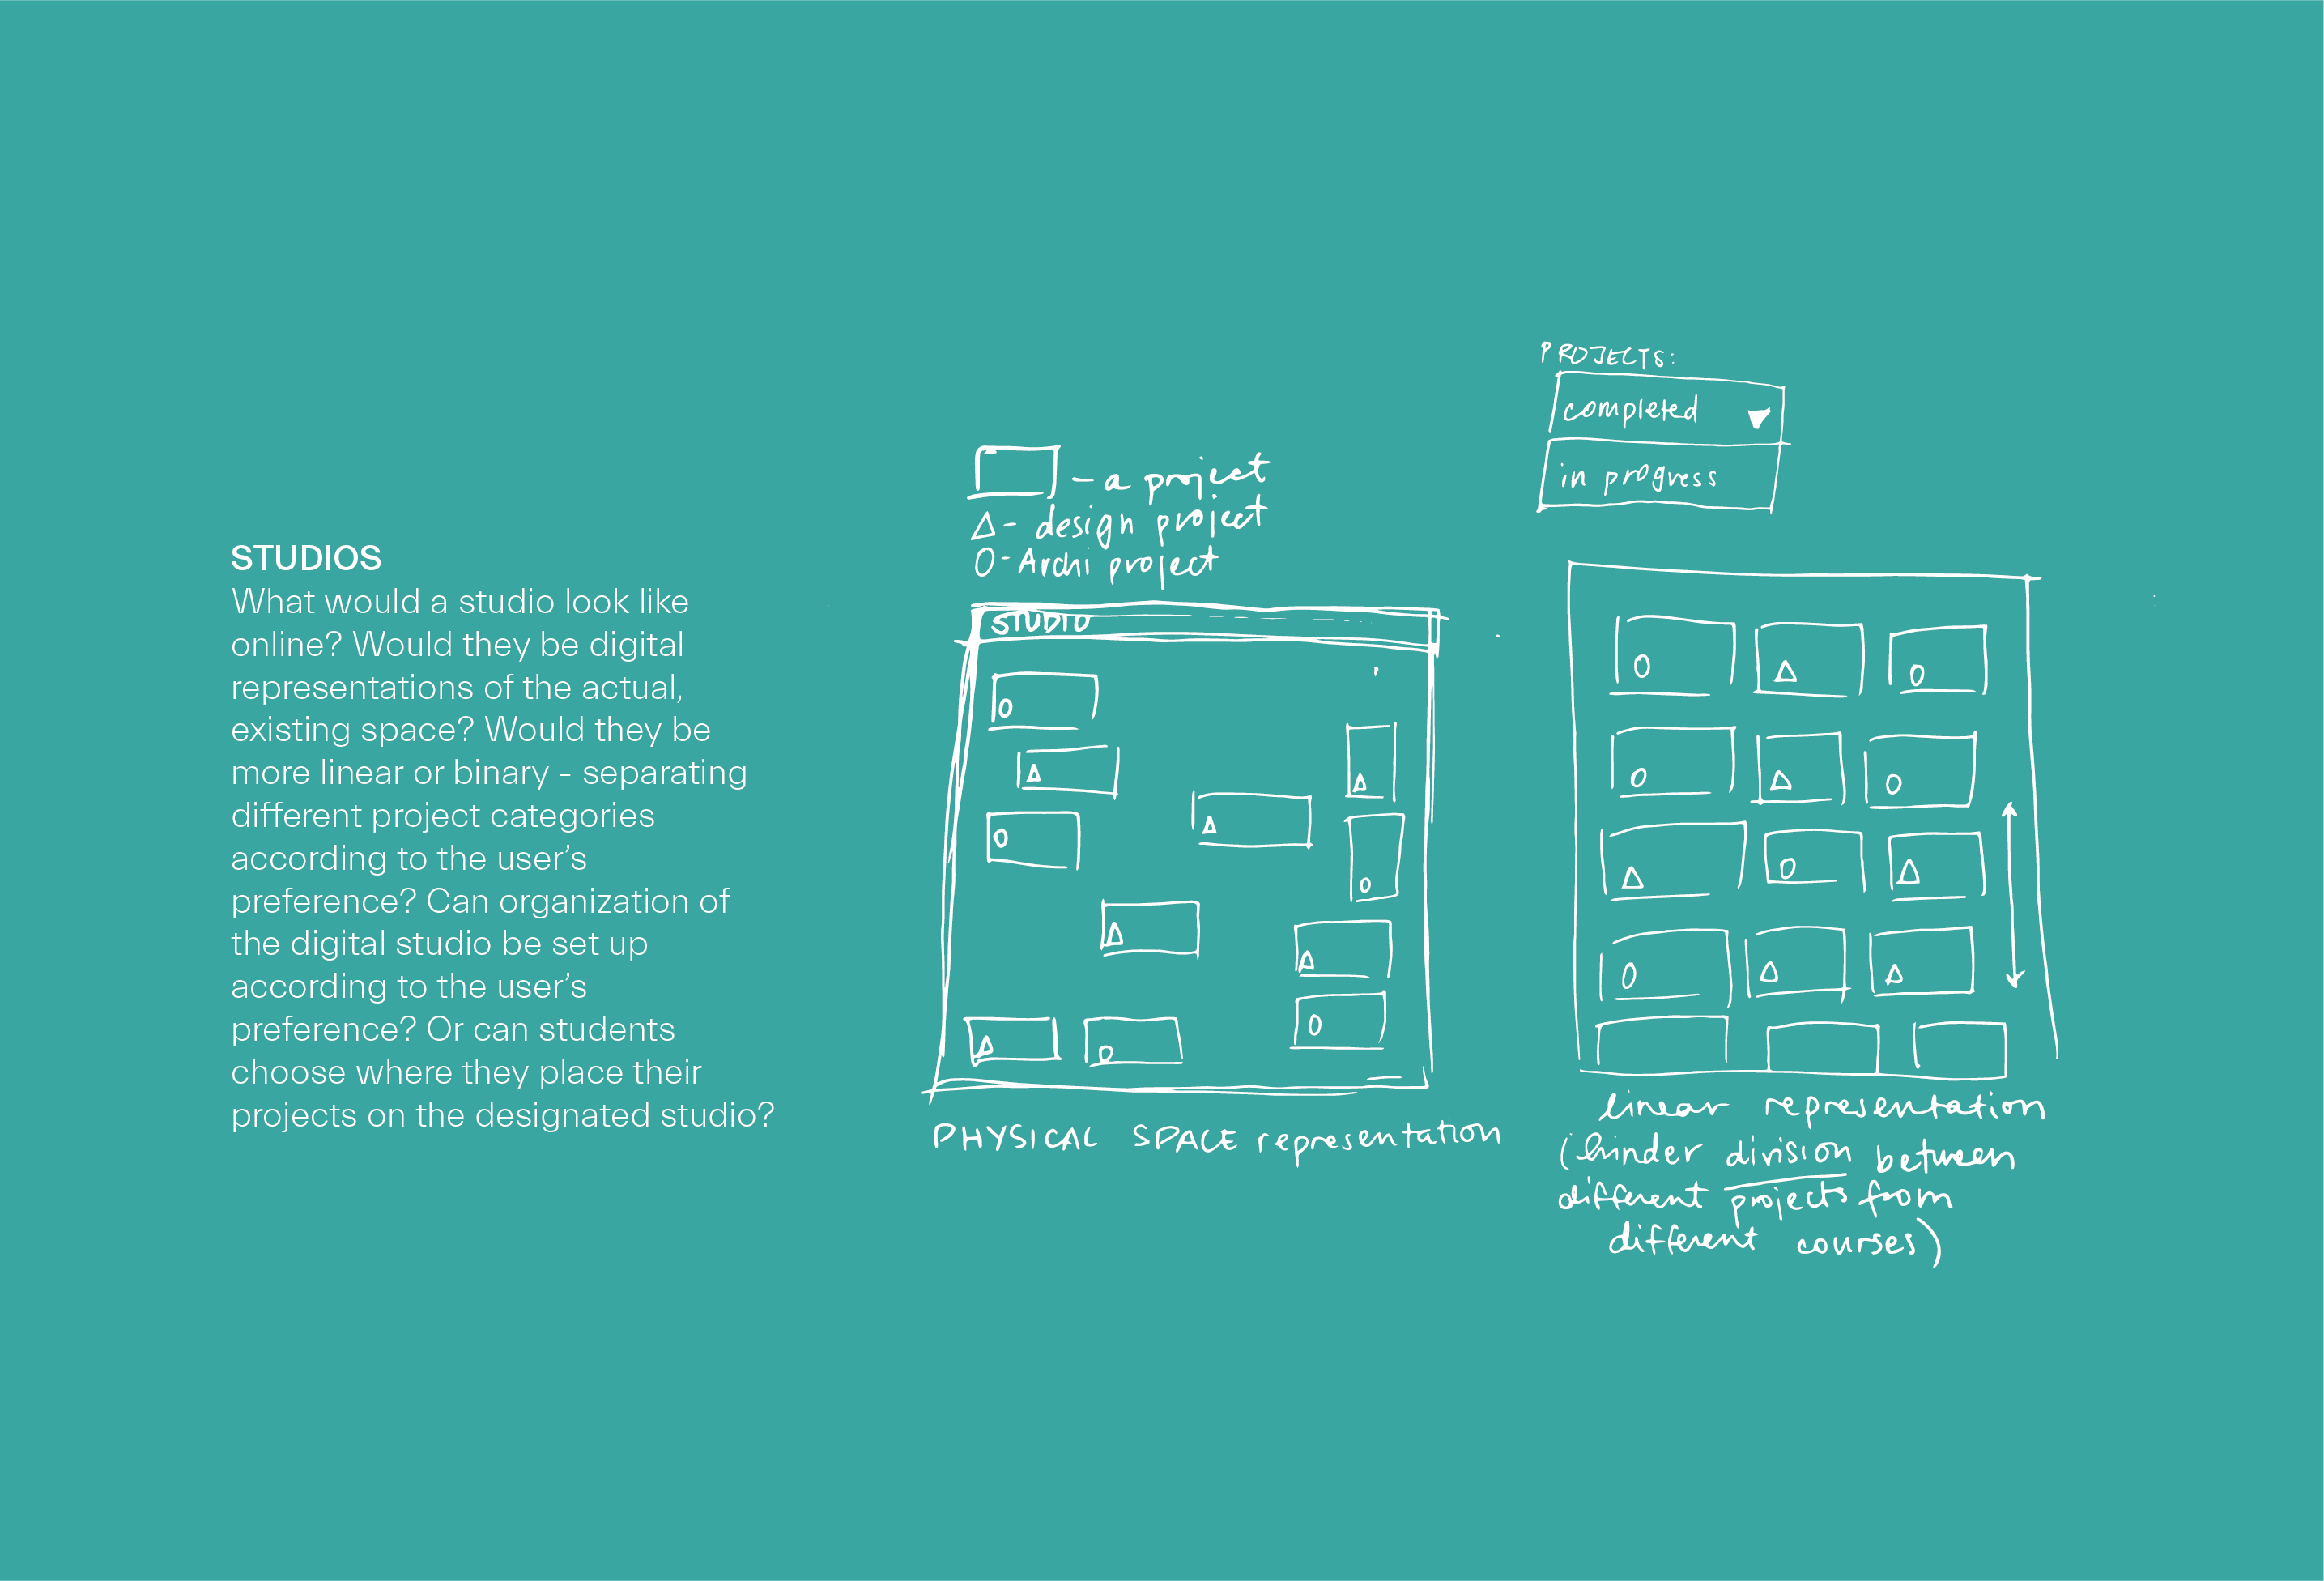 STUDIOS
What would a studio look like
online? Would they be digital
representations of the actual,
existing space? Would they be
more linear or binary - separating
different project categories
according to the user's
preference? Can organization of
the digital studio be set up
according to the user's
preference? Or can students
choose where they place their
projects on the designated studio?
- a project
Δ - design project
O - Archi project
STUDIO
O
Δ
O
Δ
Δ
O
Δ
Δ
O
Δ
O
PHYSICAL SPACE representation
PROJECTS:
completed
in progress
O Δ O
O Δ O
Δ O Δ
O Δ Δ
linear representation
(hinder division between
different projects from
different courses)